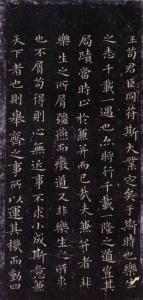 王苟君臣同符斯大業定矣于斯時也樂
之志千載一遇也亦將行千載一隆之道豈其
局蹟當時止於兼并而已哉夫兼并者非
樂生之所屑彊燕而廢道又非樂生之所求
也不屑苟得則心無近事不求小成斯意兼
天下者也則舉齊之事所以運其機而動四